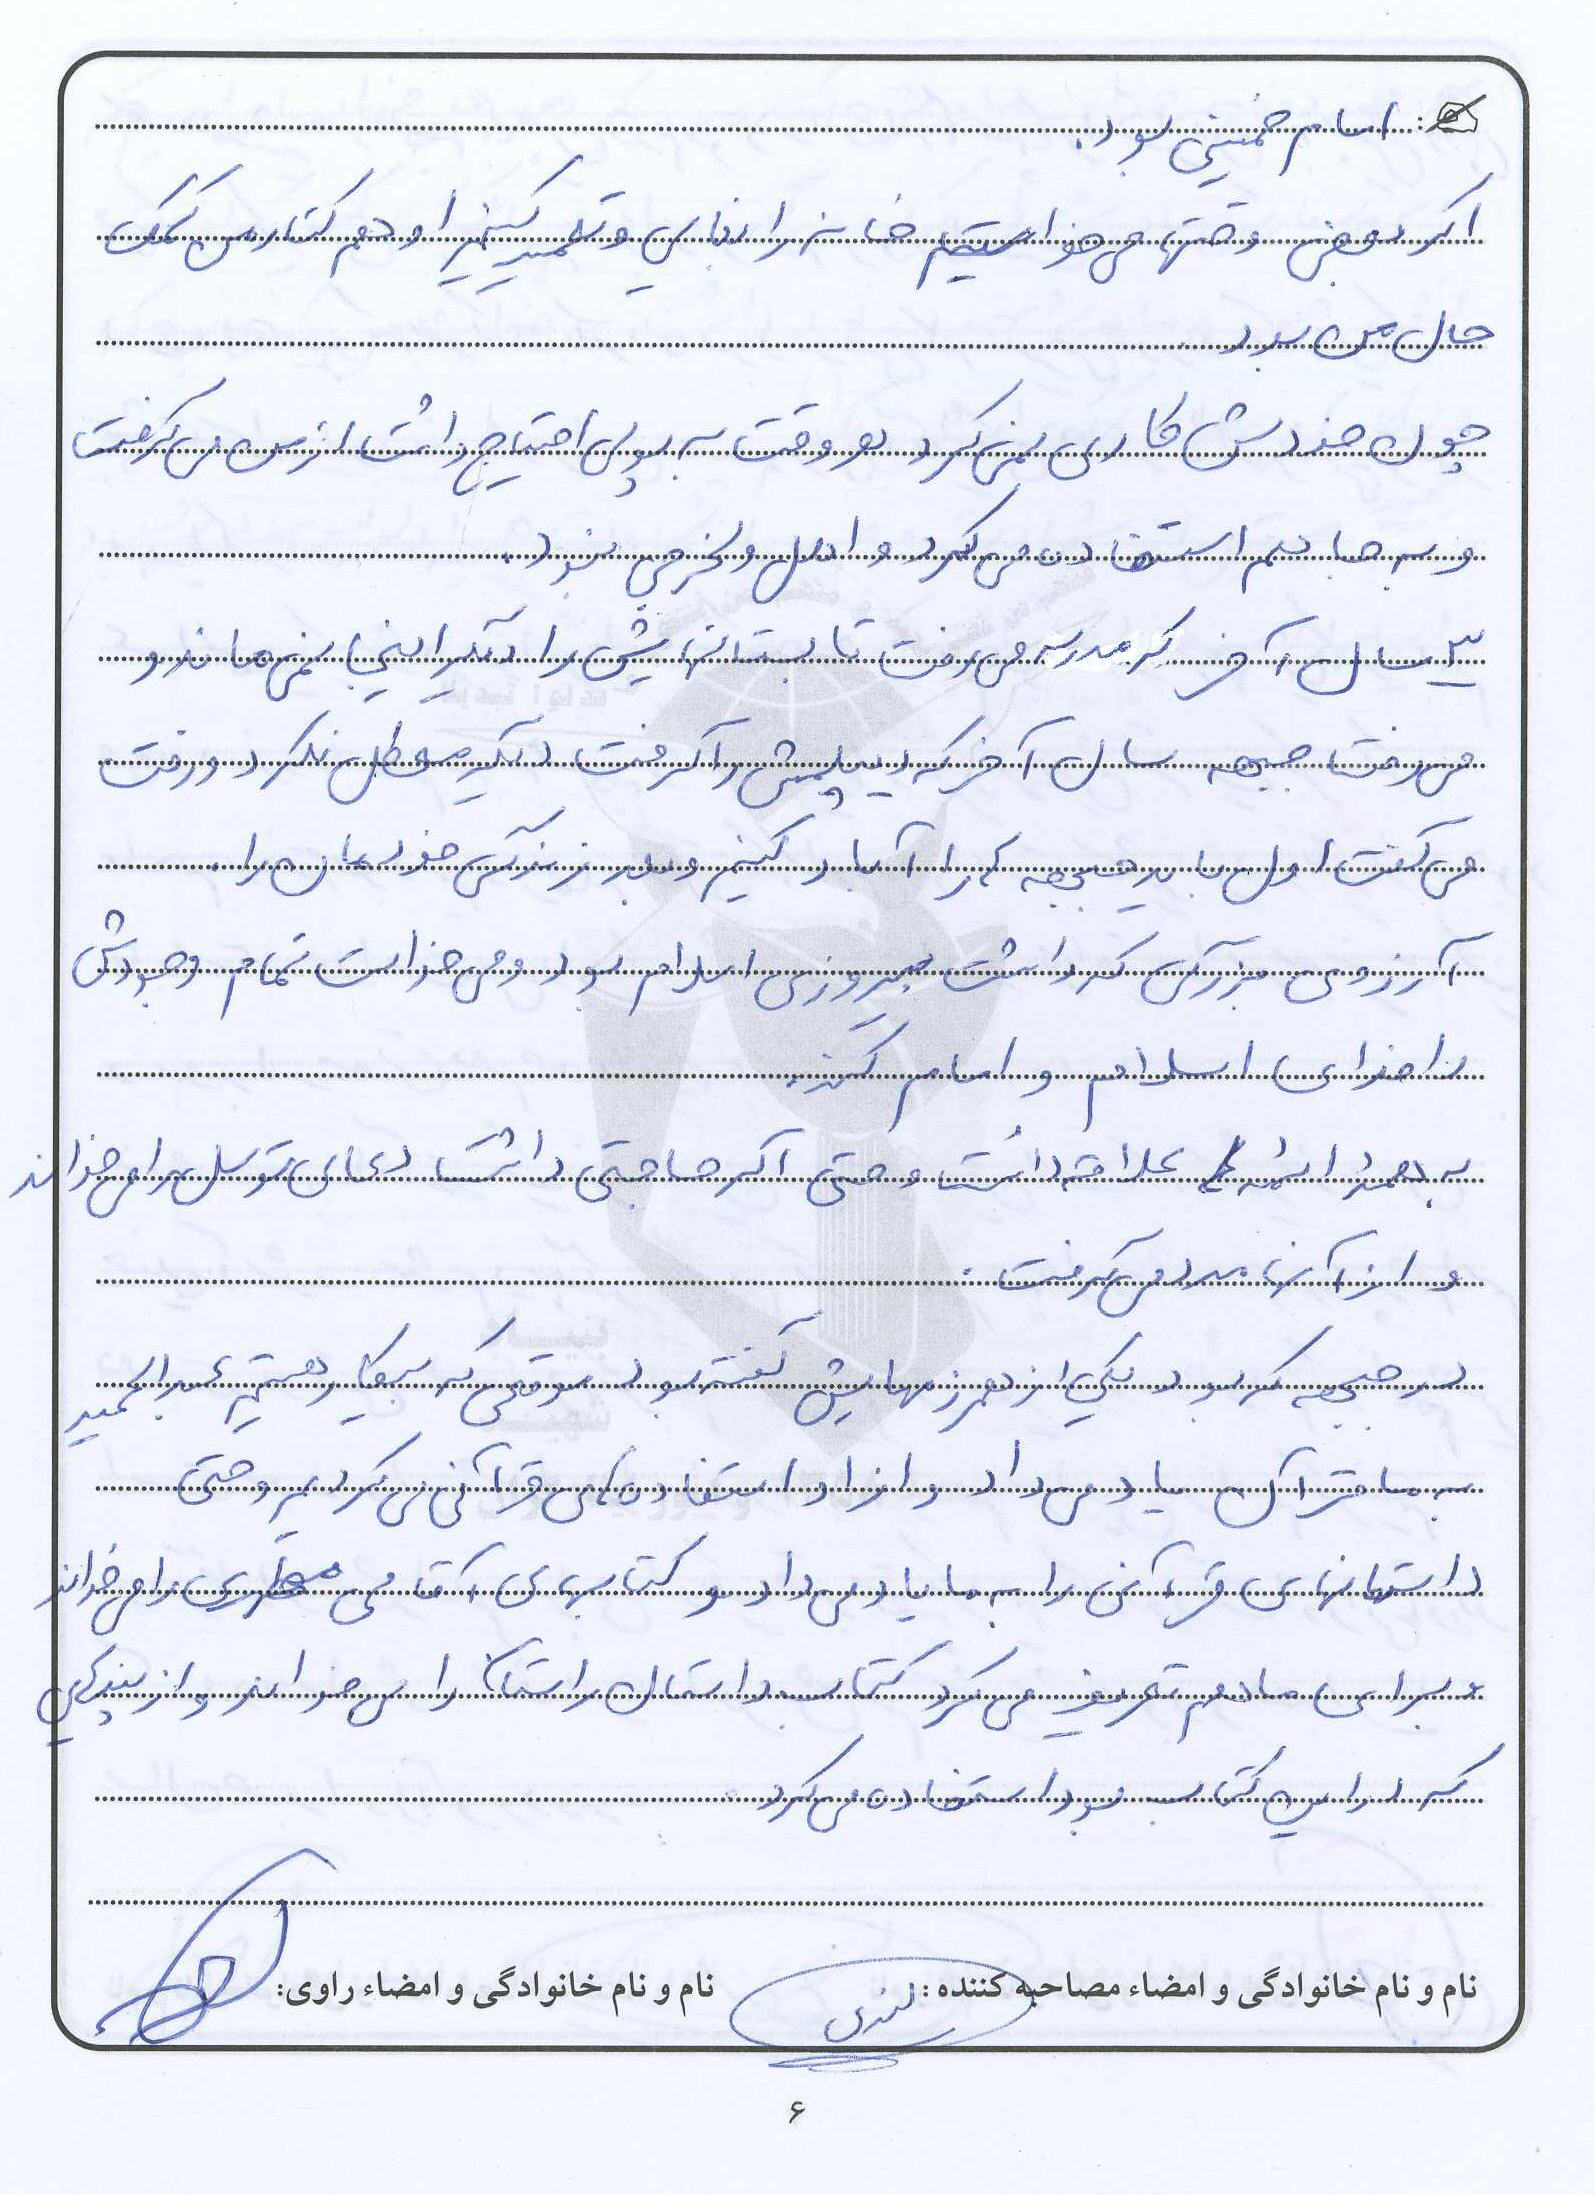 امام خمینی بود.
اگر بعضی وقتها می خواستیم خانه را بنایی و تعمیر کنیم او هم کنار من کمک
حال من بود
چون خودش کاری نمی کرد هر وقت به پول احتیاج داشت از من می گرفت
و به جا هم استفاده می کرد و اهل ولخرجی نبود.
۳ سال آخر که مدرسه می رفت تابستانهایش را دیگر اینجا نمی ماند و
می رفت جبهه سال آخر که دیپلمش را گرفت دیگر معطل نکرد و رفت
می گفت اول باید جبهه ها را آباد کنیم و بعد زندگی خودمان را.
آرزوی بزرگی که داشت پیروزی اسلام بود و می خواست تمام وجودش
را فدای اسلام و امام کند.
به همه ائمه علاقه داشت و حتی اگر حاجتی داشت دعای توسل را می خواند
و از آنها مدد می گرفت.
در جبهه که بود یکی از همرزمهایش گفته بود موقعی که بیکار هستیم عبدالحمید
به ما قرآن یاد می داد و از او استفاده های قرآنی می کردیم و حتی
داستانهای قرآنی را به ما یاد می داد و کتابهای آقای مطهری را می خواند
و برای ما هم تعریف می کرد کتاب داستان راستان را می خواند و از پندهایی
که در این کتاب بود استفاده می کرد.
نام و نام خانوادگی و امضاء مصاحبه کننده: نام و نام خانوادگی و امضاء راوی:
۶